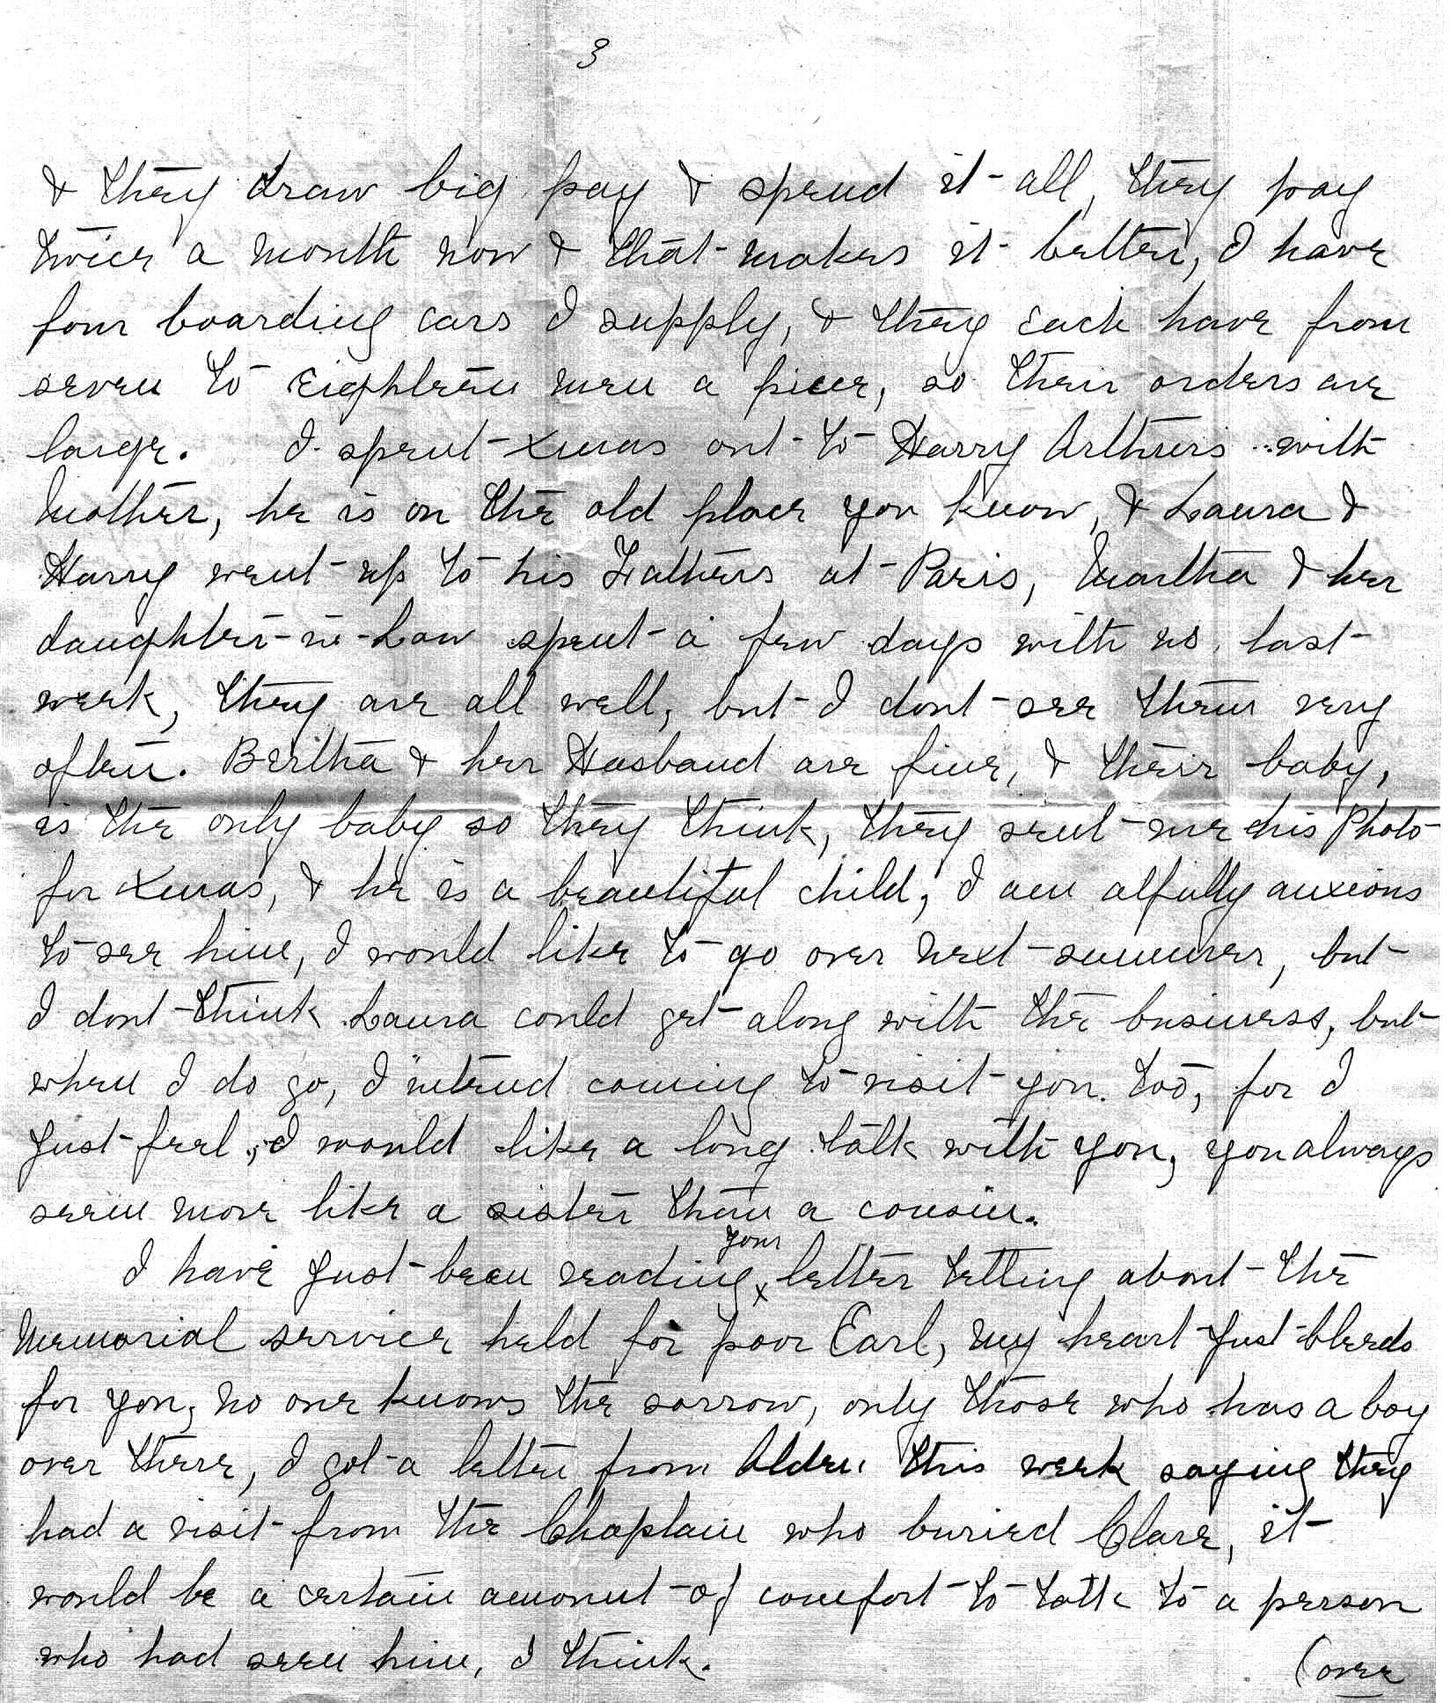 3
& they draw big pay & spend it all, they pay
twice a month now & that makes it better, I have
four boarding cars I supply, & they each have from
seven to eighteen men a piece, so their orders are
large. I spent Xmas out to Harry Arthurs with
Mother, he is on the old place you know, & Laura &
Harry went up to his Fathers at Paris, Martha & her
daughter-in-Law spent a few days with us last
week, they are all well, but I dont see them very
often. Bertha & her Husband are fine, & their baby,
is the only baby so they think, they sent me his Photo
for Xmas, & he is a beautiful child, I am alfully anxious
to see him, I would like to go over next summer, but
I dont think Laura could get along with the business, but
when I do go, I intend coming to visit you too, for I
just feel, I would like a long talk with you, you always
seem more like a sister than a cousin.
your
I have just been reading x letter telling about the
Memorial service held for poor Earl, my heart just bleeds
for you, no one knows the sorrow, only those who has a boy
over there, I got a letter from this week saying they
had a visit from the Chaplain who buried Clare, it
would be a certain amount of comfort to talk to a person
who had seen him, I think.
(over